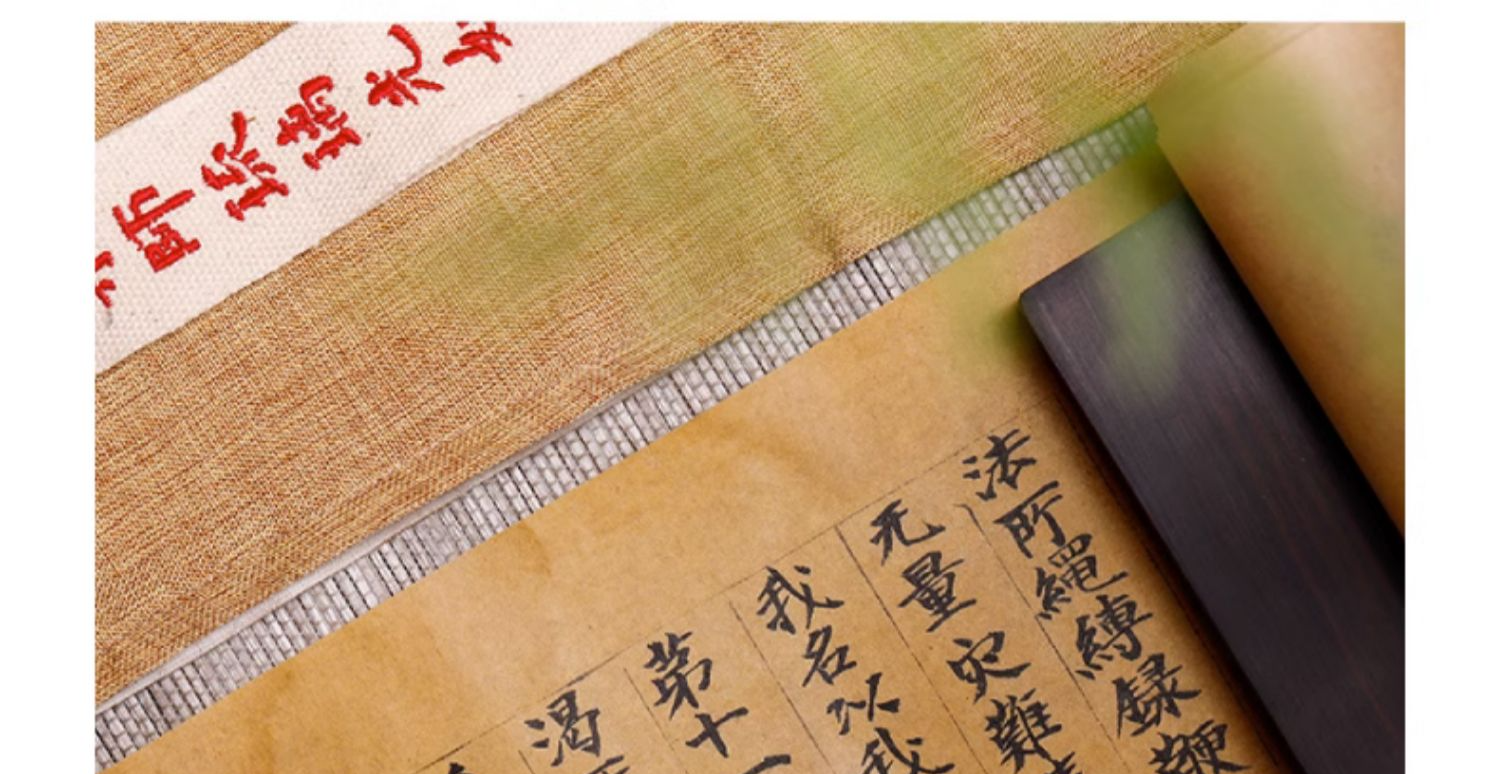 師琉璃光
法所繩縛録鞭
无量灾難
我名以我
第十一
渴